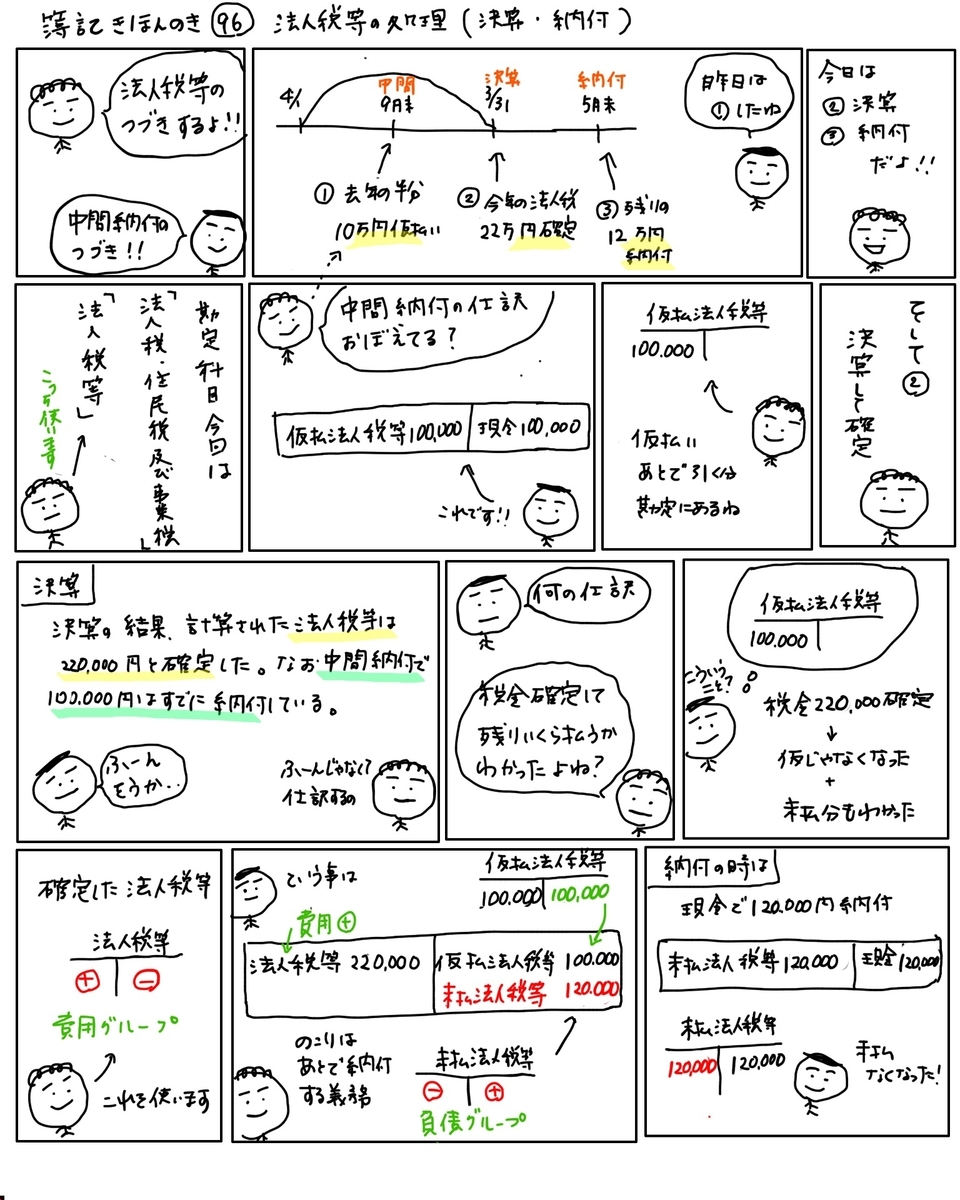 簿記きほんのき 96 法人税等の処理(決算・納付)
法人税等の
つづきするよ!!
中間納付の
つづき!!
中間
決算
納付
4/1
9月末
3/31
5月末
① 去年の半分
10万円仮払い
② 今年の法人税
22万円確定
③ 残りの
12万円
納付
昨日は
①したね
今日は
② 決算
③ 納付
だよ!!
勘定科目今回は
「法人税・住民税及び事業税」
「法人税等」
こっち使います
中間納付の仕訳
おぼえてる?
仮払法人税等100,000 現金100,000
これです!!
仮払法人税等
100.000
仮払い
あとで引く分
勘定にあるね
そして②
決算して確定
決算
決算の結果、計算された法人税等は
220,000円と確定した。なお中間納付で
100.000円はすでに納付している。
ふーん
そうか..
ふーんじゃなくて
仕訳するの
何の仕訳
税金確定して
残りいくら払うか
わかったよね?
仮払法人税等
100.000
こういう
こと?
税金220,000確定
↓
仮じゃなくなった
+
未払分もわかった
確定した法人税等
法人税等
+ −
費用グループ
これを使います
という事は
仮払法人税等
100.000 100,000
費用+
法人税等 220,000 仮払法人税等 100.000
未払法人税等 120.000
のこりは
あとで納付
する義務
未払法人税等
− +
負債グループ
納付の時は
現金で120.000円納付
未払法人税等120,000 現金120,000
未払法人税等
120,000 120,000
未払
なくなった!